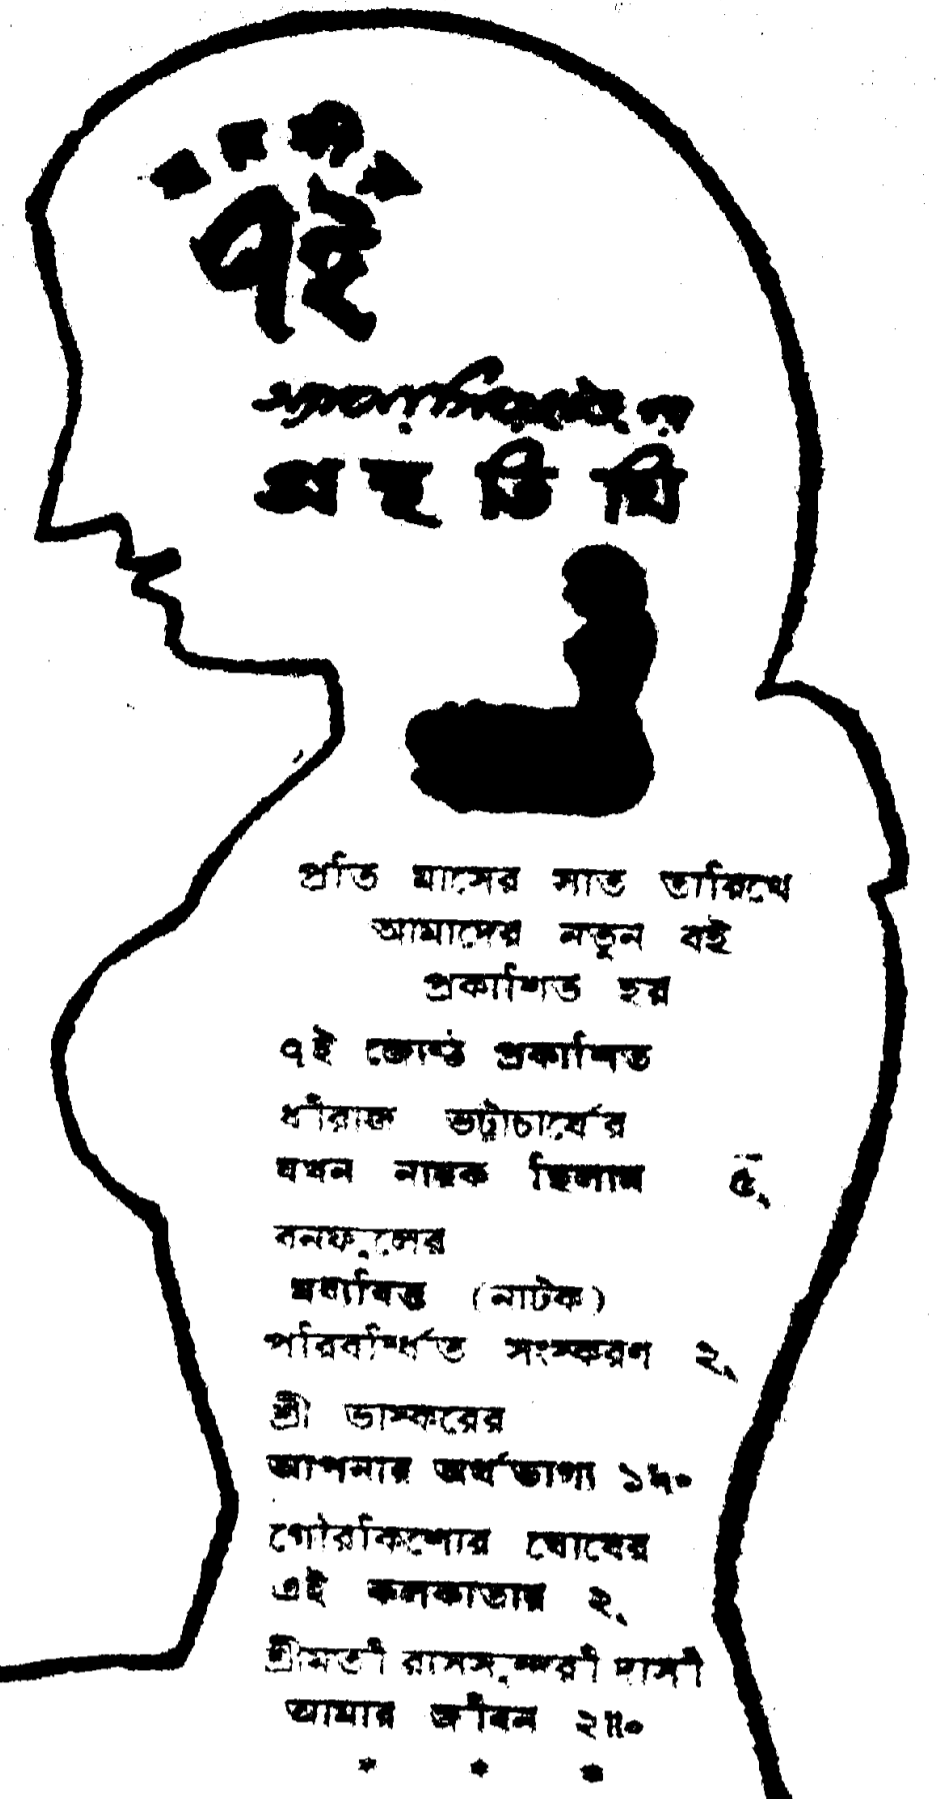 স্মরণীয়
৭ই
অ্যাসোসিয়েটেড-এর
গ্রন্থতিথি
প্রতি মাসের সাত তারিখে
আমাদের নতুন বই
প্রকাশিত হয়
৭ই জ্যৈষ্ঠ প্রকাশিত
ধীরাজ ভট্টাচার্যের
যখন নায়ক ছিলাম ৫৲
বনফুলের
মধ্যবিত্ত (নাটক)
পরিবর্ধিত সংস্করণ ২৲
শ্রী ভাস্করের
আপনার অর্থভাগ্য ১৸০
গৌরকিশোর ঘোষের
এই কলকাতায় ২৲
শ্রীমতী রাসসুন্দরী দাসী
আমার জীবন ২॥০
* * *